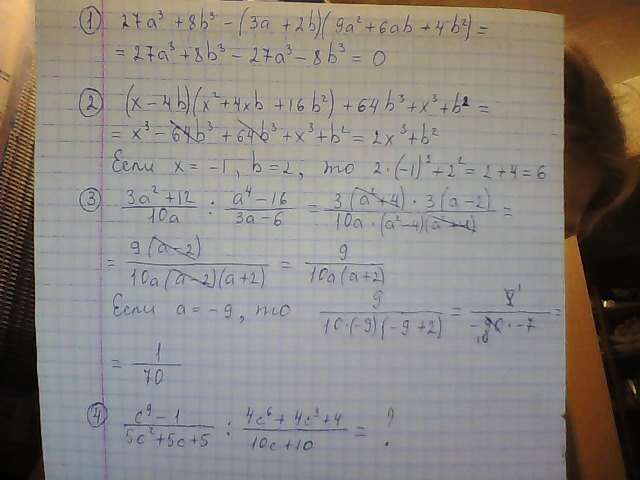 ① 27a³ + 8b³ - (3a + 2b)(9a² + 6ab + 4b²) =
= 27a³ + 8b³ - 27a³ - 8b³ = 0
② (x - 4b)(x² + 4xb + 16b²) + 64b³ + x³ + b² =
= x³ - 64b³ + 64b³ + x³ + b² = 2x³ + b²
Если x = -1, b = 2, то 2·(-1)³ + 2² = 2 + 4 = 6
③ (3a² + 12)/(10a) : (a⁴ - 16)/(3a - 6) = (3(a² + 4)·3(a - 2))/(10a·(a² - 4)(a² + 4)) =
= (9(a - 2))/(10a(a - 2)(a + 2)) = 9/(10a(a + 2))
Если a = -9, то 9/(10·(-9)(-9 + 2)) = 9 1/(-90 10·-7) =
= 1/70
④ (c⁹ - 1)/(5c² + 5c + 5) : (4c⁶ + 4c³ + 4)/(10c + 10) = ?